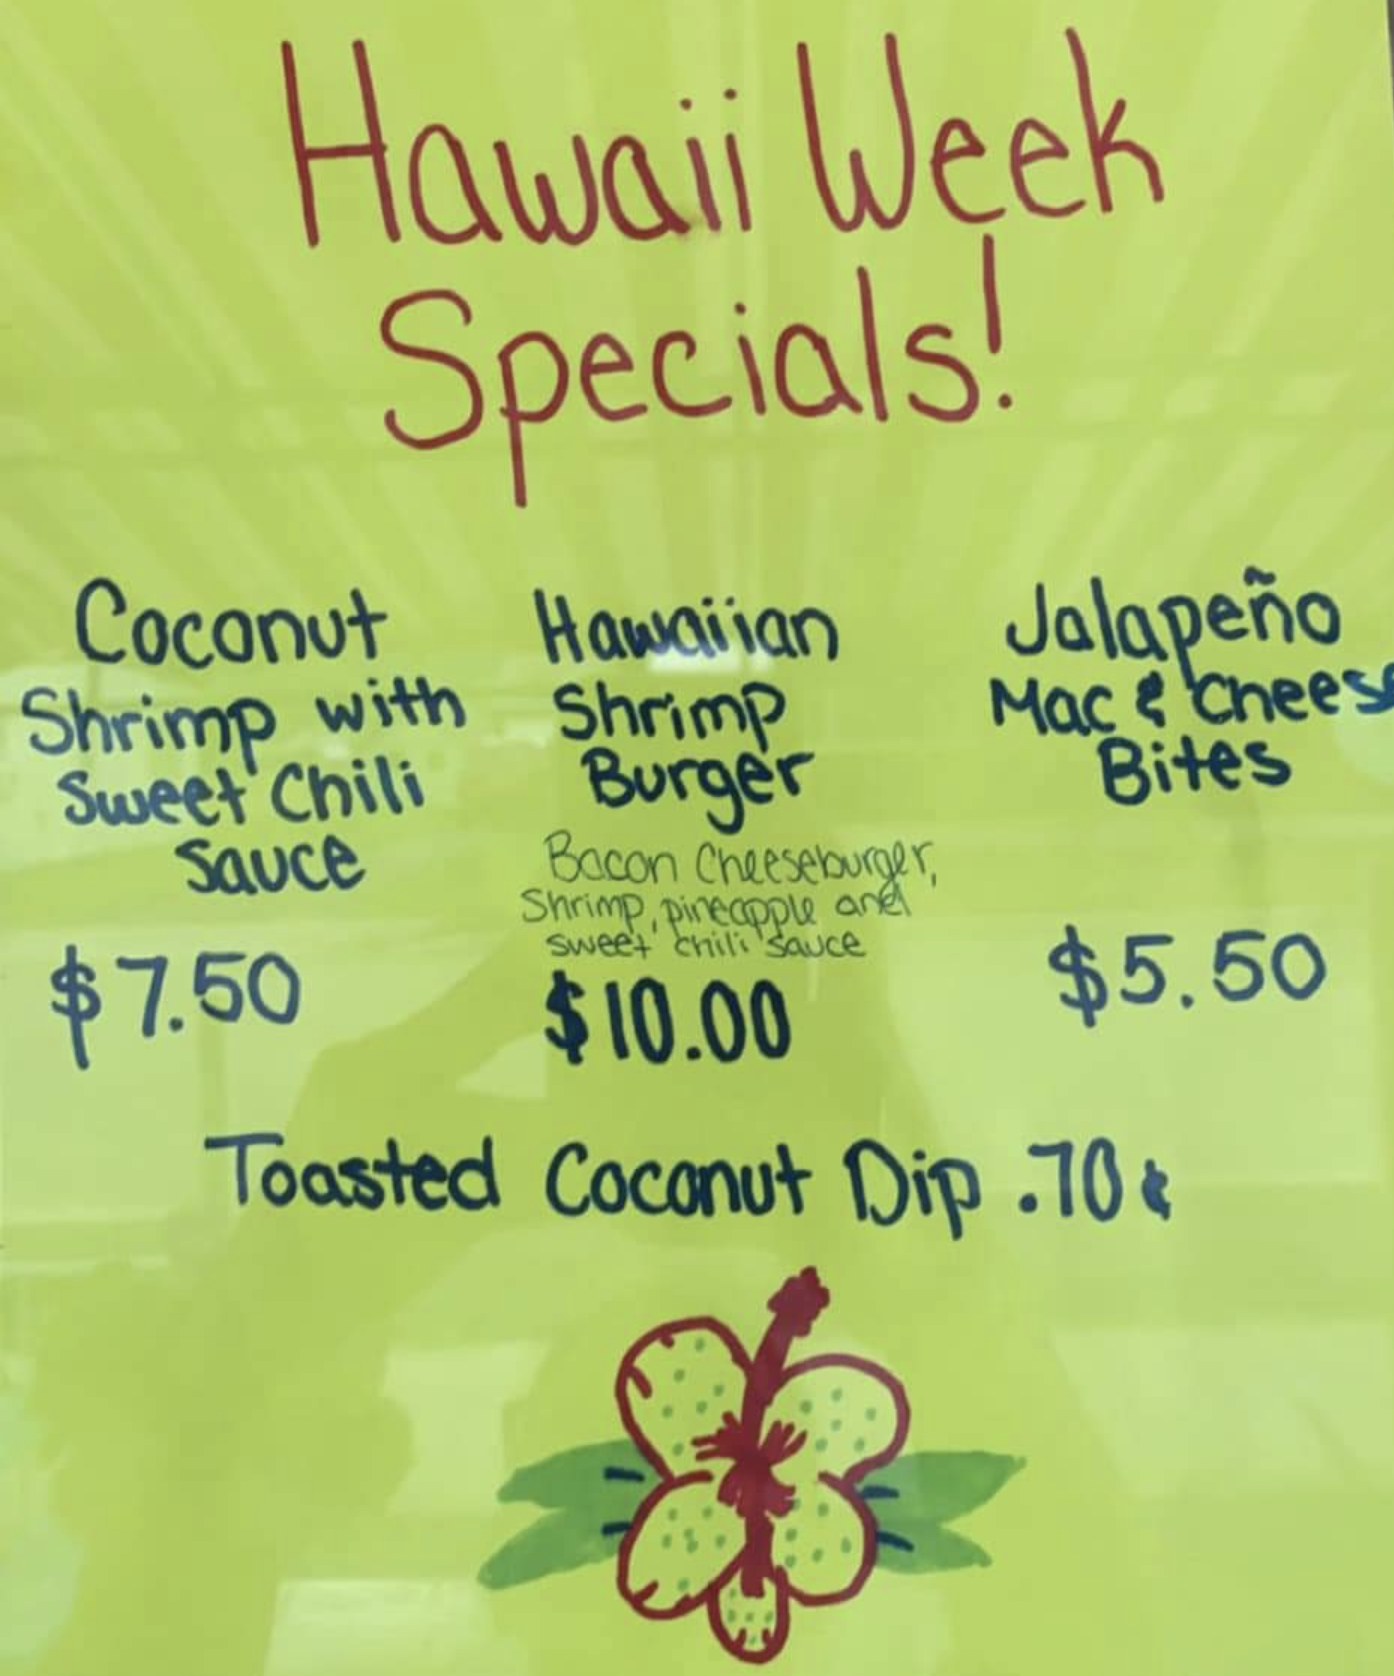 Hawaii Week
Specials!
Coconut
Shrimp with
Sweet Chili
Sauce
$7.50
Hawaiian
Shrimp
Burger
Bacon Cheeseburger,
Shrimp, pineapple and
sweet chili sauce
$10.00
Jalapeño
Mac & Cheese
Bites
$5.50
Toasted Coconut Dip .70¢